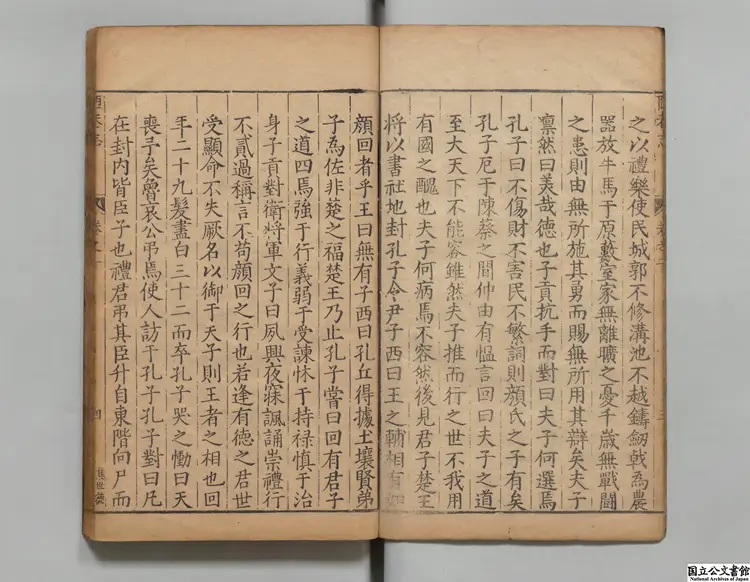 之以禮樂使民城郭不修溝池不越鑄劒戟為農
器放牛馬于原藪室家無離曠之憂千歳無戰鬪
之患則由無所施其勇而賜無所用其辯矣夫子
凛然曰美哉德也子貢抗手而對曰夫子何選焉
孔子曰不傷財不害民不繁詞則顔氏之子有矣
孔子厄于陳蔡之間仲由有愠言回曰夫子之道
至大天下不能容雖然夫子推而行之世不我用
有國之醜也夫子何病焉不容然後見君子楚王
將以書社地封孔子令尹子西曰王之輔相有如
顔回者乎王曰無有子西曰孔丘得據土壤賢弟
子為佐非楚之福楚王乃止孔子嘗曰回有君子
之道四焉強于行義弱于受諫怵于持禄慎于治
身子貢對衛將軍文子曰夙興夜寐諷誦崇禮行
不貳過稱言不苟顔回之行也若逢有德之君世
受顯命不失厥名以御于天子則王者之相也回
年二十九髮盡白三十二而卒孔子哭之慟曰天
喪予矣魯哀公弔焉使人訪于孔子孔子對曰凡
在封内皆臣子也禮君弔其臣升自東階向尸而
卷之二
三
卷之二
四
国立公文書館
National Archives of Japan